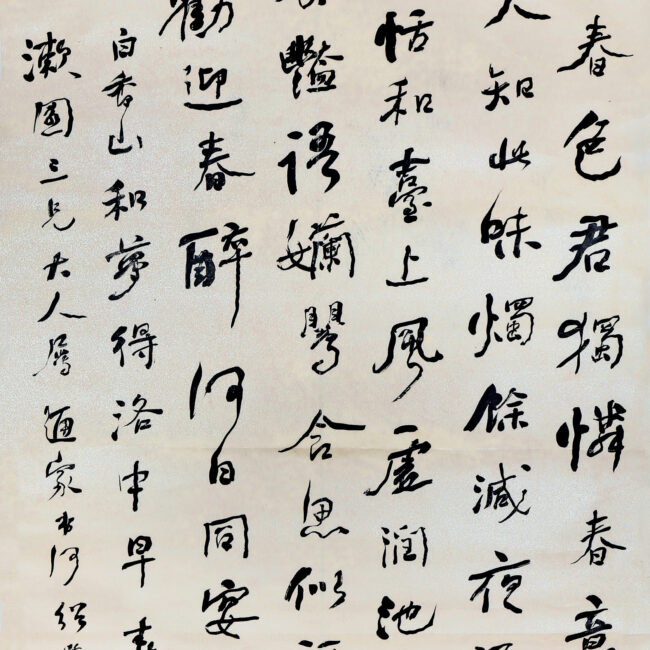 春色君獨憐春意
知此味燭餘減夜
恬和臺上風虛潤池
豔語嬾鶯含思似
勸迎春醉何日同宴
白香山和夢得洛中早春
園三兄大人屬通家弟何紹